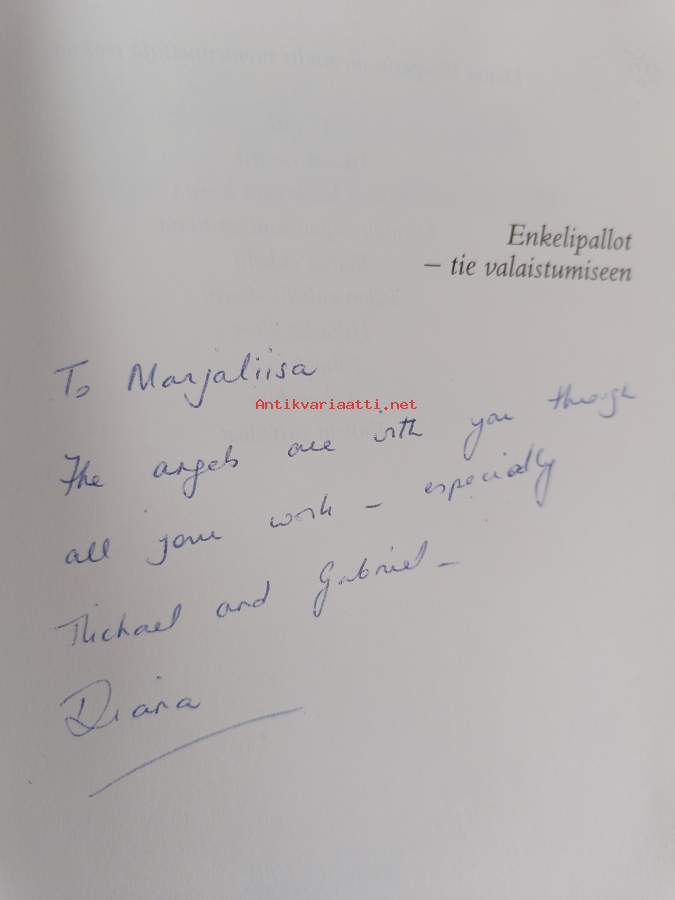 Enkelipallot
– tie valaistumiseen
To Marjaliisa
Antikvariaatti.net
The angels are with you through
all your work – especially
Michael and Gabriel –
Diana